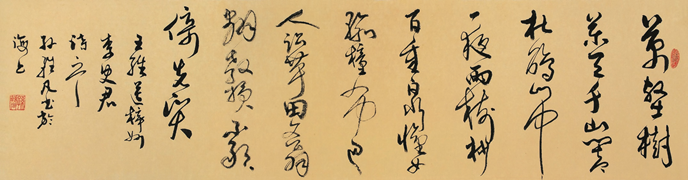 萬壑樹
参天千山響
杜鵑山中
一夜雨樹杪
百重泉漢女
輸橦布巴
人訟芋田文翁
翻教授不敢
倚先賢
王維送梓州
李史君
詩
凡書於
海上